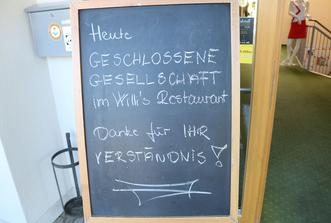 Heute
GESCHLOSSENE
GESELLSCHAFT
im Willi's Restaurant
Danke für IHR
VERSTÄNDNIS!